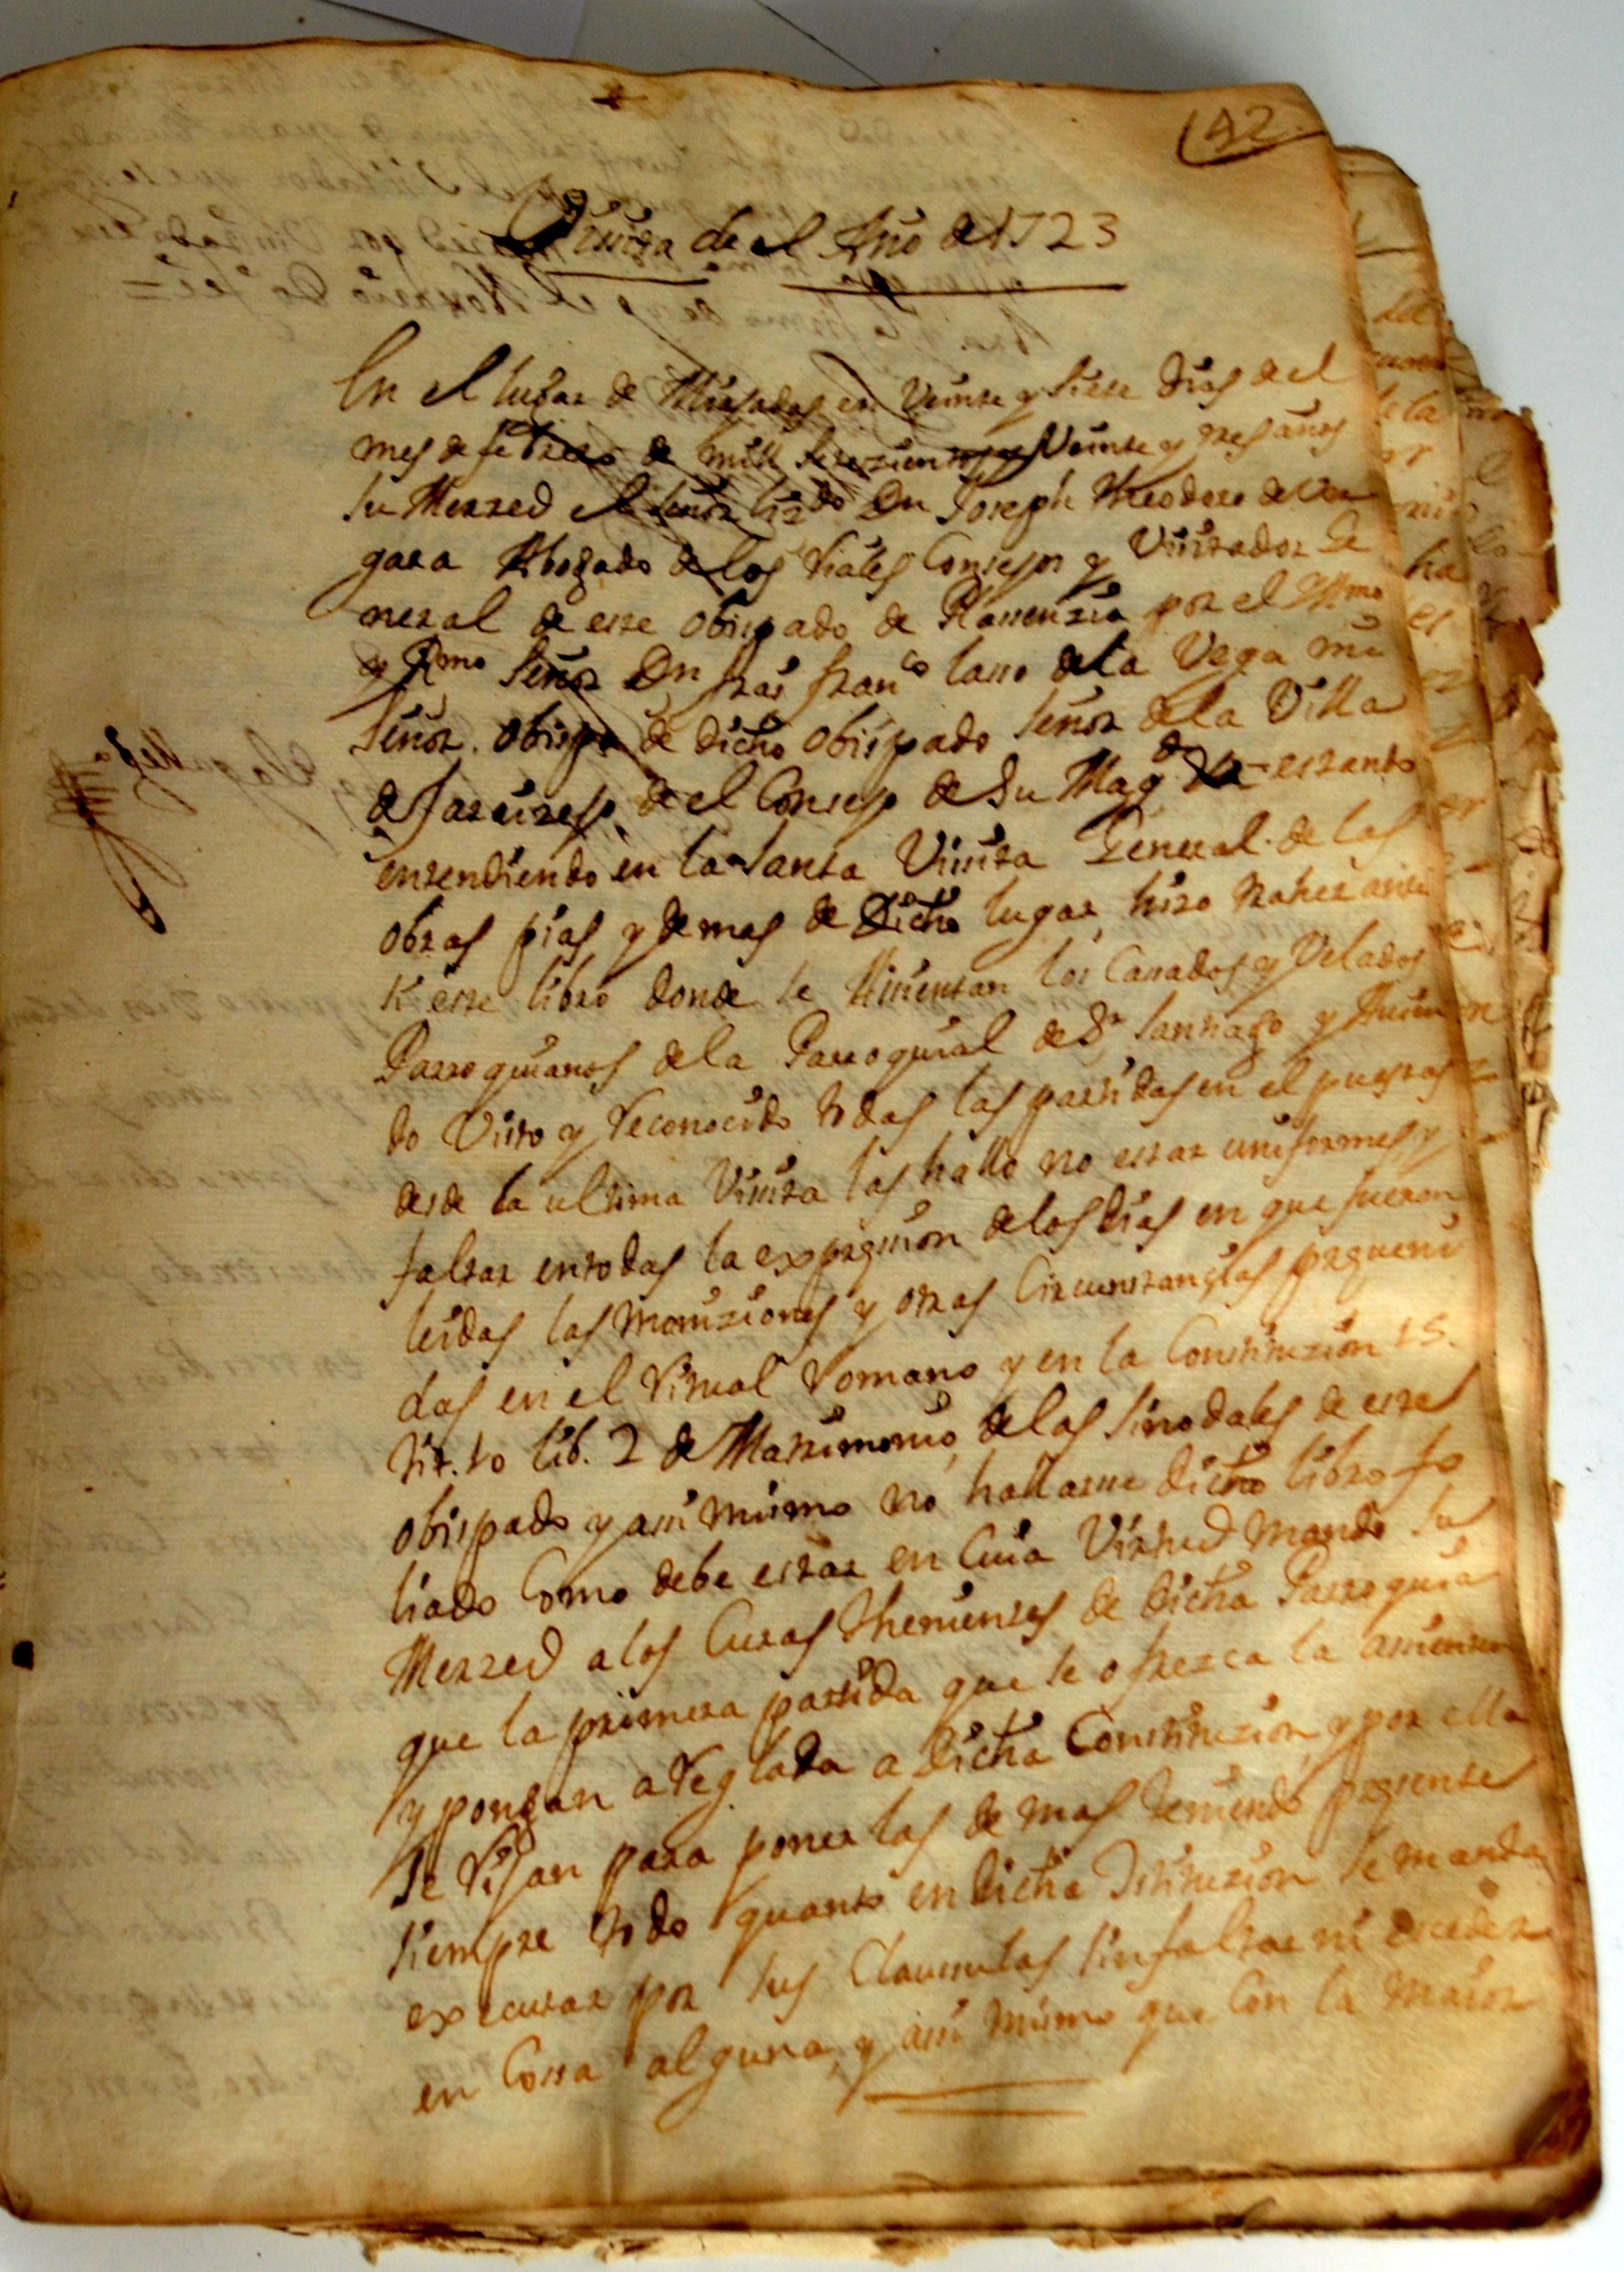 142
Visita de el Año de 1723
En el lugar de Miajadas en Veinte y siete dias de el
mes de febrero de mill setezientos y Veinte y tres años
su Merzed el señor lizdo Dn Joseph Theodoro de Ver
gara Abogado de los Reales Consejos y Visitador Ge
neral de este obispado de Plasenzia por el Illmo
y Rmo señor Dn frai franco lasso de la Vega mi
señor. obispo de dicho obispado señor de la Villa
de Jaraizejo, de el Consejo de Su Magd estando
entendiendo en la santa Visita General de las
obras pias y demas de Dicho lugar, hizo traher ante
si este libro donde se Assientan los Cassados y Velados
Parroquianos de la Parroquial de Sr Santiago y Auien
do Visto y Reconocido todas las partidas en el puestas
desde la ultima Visita las hallo no estar uniformes, y
faltar en todas la expresion de los dias en que fueron
leidas las moniziones y otras Circunstanzias preueni
das en el Ritual Romano y en la Constituzion 15.
tit. 10 lib. 2 de Matrimonio, de las sinodales de este
obispado y assi mismo no hallarse dicho libro fo
liado Como debe estar en Cuia Virtud mando su
Merzed a los Curas thenientes de dicha Parroquia
que la primera partida que se ofrezca la assienten
y pongan aReglada a dicha Constituzion, y por ella
se Rijan para poner las demas teniendo presente
siempre todo quanto en dicha Istituzion se manda
executar por sus Clausulas sin faltar ni exceder
en Cossa alguna, y assi mismo que Con la maior